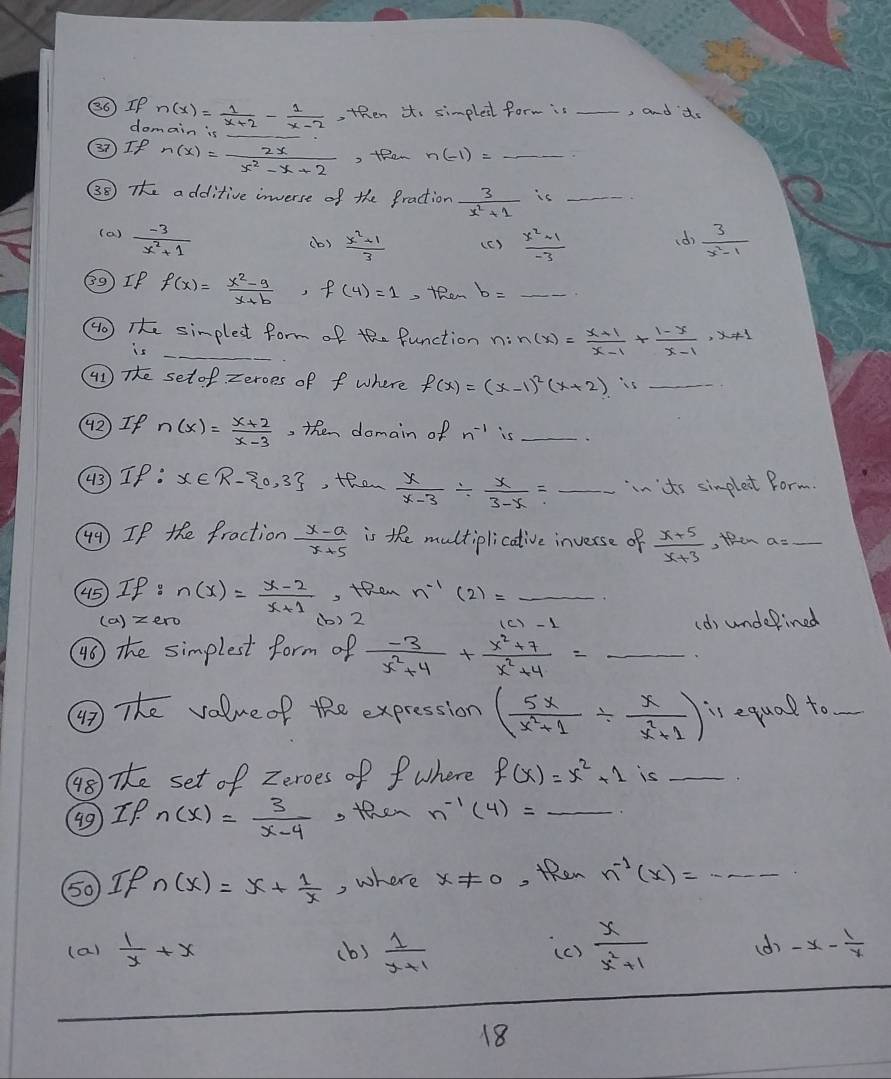 (36) If n(x) = 1/(x+2) - 1/(x-2), then its simplest form is ____, and its
domain is ______.
(37) If n(x) = 2x/(x² - x + 2), then n(-1) = _____.
(38) The additive inverse of the fraction 3/(x² + 1) is _____.
(a) -3/(x² + 1) (b) (x²+1)/3 (c) (x²+1)/-3 (d) 3/(x²-1)
(39) If f(x) = (x²-9)/(x+b), f(4) = 1, then b = ____.
(40) The simplest form of the function n: n(x) = (x+1)/(x-1) + (1-x)/(x-1), x≠1
is ________.
(41) The set of zeroes of f where f(x) = (x-1)²(x+2) is _____.
(42) If n(x) = (x+2)/(x-3), then domain of n⁻¹ is ____.
(43) If: x ∈ R-{0,3}, then x/(x-3) ÷ x/(3-x) = ____ in its simplest form.
(44) If the fraction (x-a)/(x+5) is the multiplicative inverse of (x+5)/(x+3), then a = __
(45) If: n(x) = (x-2)/(x+1), then n⁻¹(2) = _____.
(a) zero (b) 2 (c) -1 (d) undefined
(46) The simplest form of -3/(x²+4) + (x²+7)/(x²+4) = _____.
(47) The value of the expression (5x/(x²+1) ÷ x/(x²+1)) is equal to __
(48) The set of zeroes of f where f(x) = x² + 1 is ____.
(49) If n(x) = 3/(x-4), then n⁻¹(4) = _____.
(50) If n(x) = x + 1/x, where x ≠ 0, then n⁻¹(x) = -----.
(a) 1/x + x (b) 1/(x+1) (c) x/(x²+1) (d) -x - 1/x
18